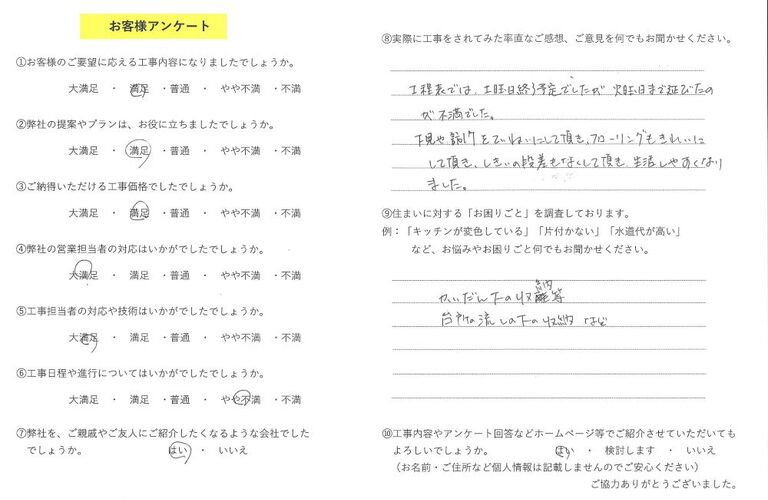 お客様アンケート
①お客様のご要望に応える工事内容になりましたでしょうか。
大満足 ・ 満足 ・普通 ・ やや不満 ・不満
②弊社の提案やプランは、お役に立ちましたでしょうか。
大満足 ・ 満足 ・普通 ・ やや不満 ・不満
③ご納得いただける工事価格でしたでしょうか。
大満足 ・ 満足 ・普通 ・ やや不満 ・不満
④弊社の営業担当者の対応はいかがでしたでしょうか。
大満足 ・ 満足 ・普通 ・ やや不満 ・不満
⑤工事担当者の対応や技術はいかがでしたでしょうか。
大満足 ・ 満足 ・普通 ・ やや不満 ・不満
⑥工事日程や進行についてはいかがでしたでしょうか。
大満足 ・ 満足 ・普通 ・ やや不満 ・不満
⑦弊社を、ご親戚やご友人にご紹介したくなるような会社でした
でしょうか。 はい ・ いいえ
⑧実際に工事をされてみた率直なご感想、ご意見を何でもお聞かせください。
工程表では、土曜日終了予定でしたが 火曜日まで延びたの
が不満でした。
下見や訪問をていねいにして頂き、フローリングもきれいに
して頂き、しきいの段差もなくして頂き、生活しやすくなり
ました。
⑨住まいに対する「お困りごと」を調査しております。
例:「キッチンが変色している」「片付かない」「水道代が高い」
など、お悩みやお困りごと何でもお聞かせください。
かいだん下の収納等
台所の流しの下の収納 など
⑩工事内容やアンケート回答などホームページ等でご紹介させていただいても
よろしいでしょうか。 はい ・ 検討します ・ いいえ
(お名前・ご住所など個人情報は記載しませんのでご安心ください)
ご協力ありがとうございました。